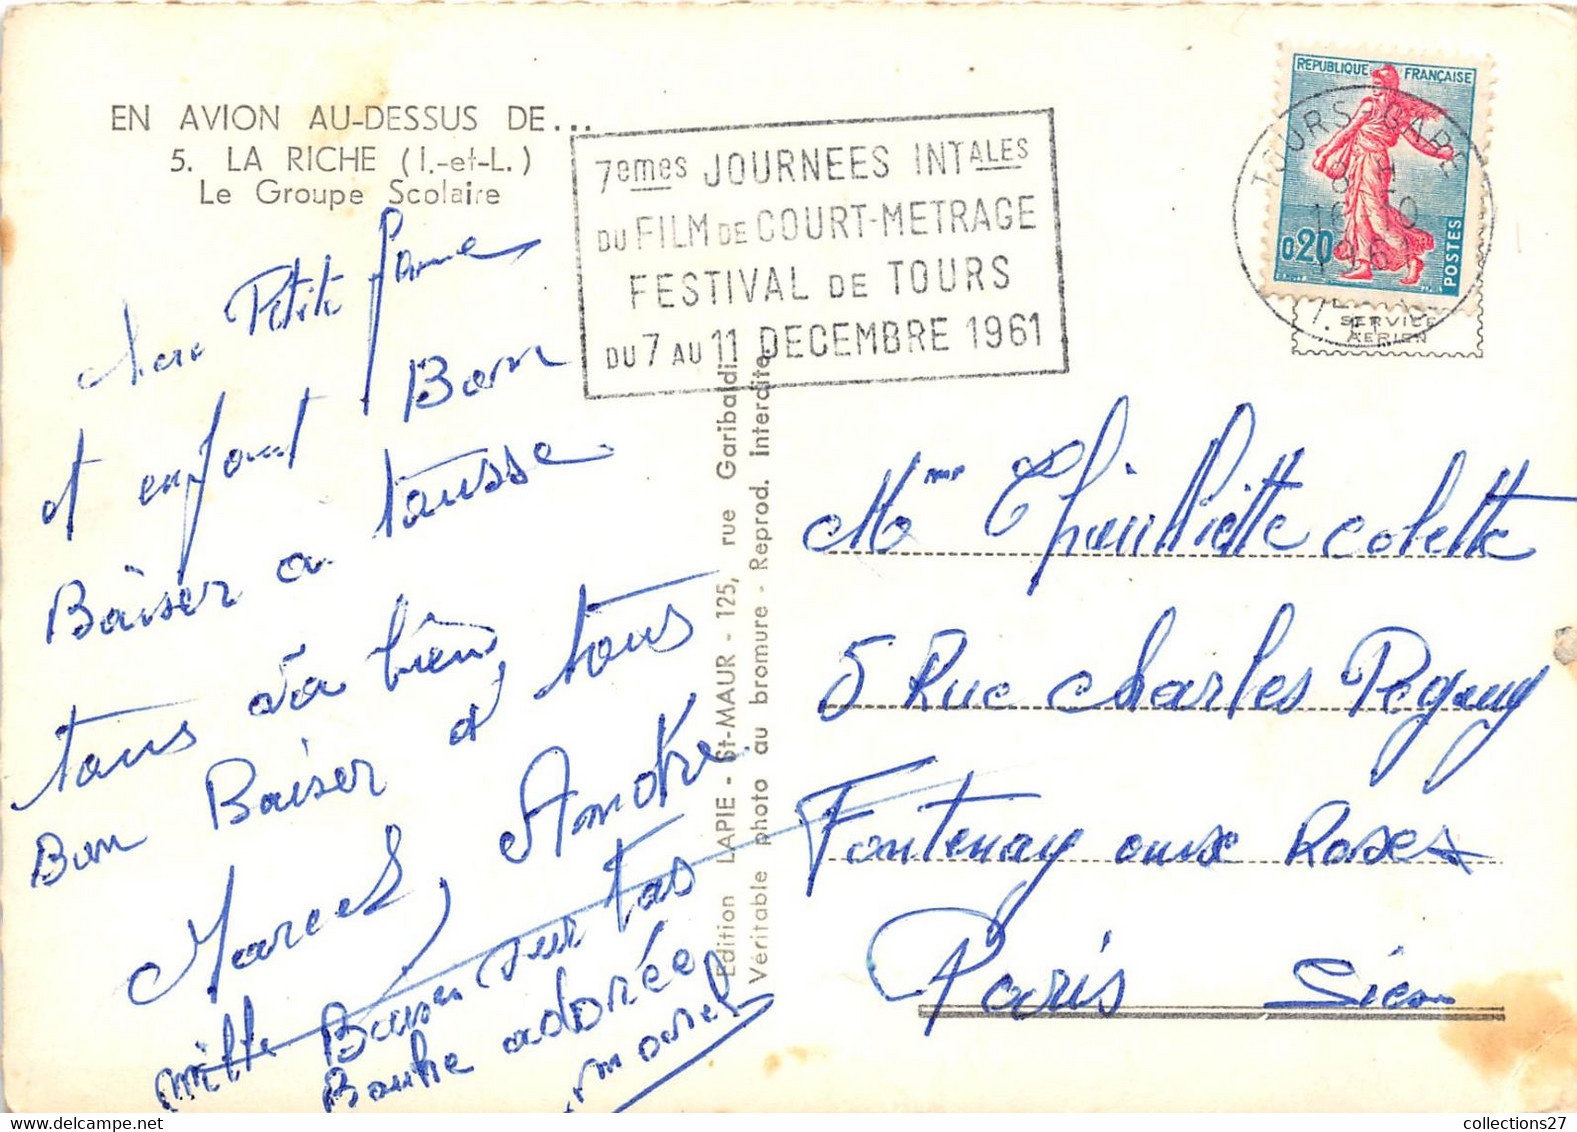 EN AVION AU-DESSUS DE...
5. LA RICHE (I.-et-L.)
Le Groupe Scolaire
7emes JOURNEES INTALES
DU FILM DE COURT-METRAGE
FESTIVAL DE TOURS
DU 7 AU 11 DECEMBRE 1961
REPUBLIQUE FRANÇAISE
0,20
POSTES
TOURS GARE
8 H
16-10
1961
SERVICE
AERIEN
chere Petite famme
et enfant Bom
Baiser a tousse
tous va bien,
Bon Baiser a tous
Marcel, André
mille Baiser sur tas
Bouche adorée
marcel
Edition LAPIE - St-MAUR - 125, rue Garibaldi
Véritable photo au bromure - Reprod. Interdite
Mme Thiulliette Colette
5 Rue Charles Pegauy
Fontenay aux Roses
Paris Siene
collections27